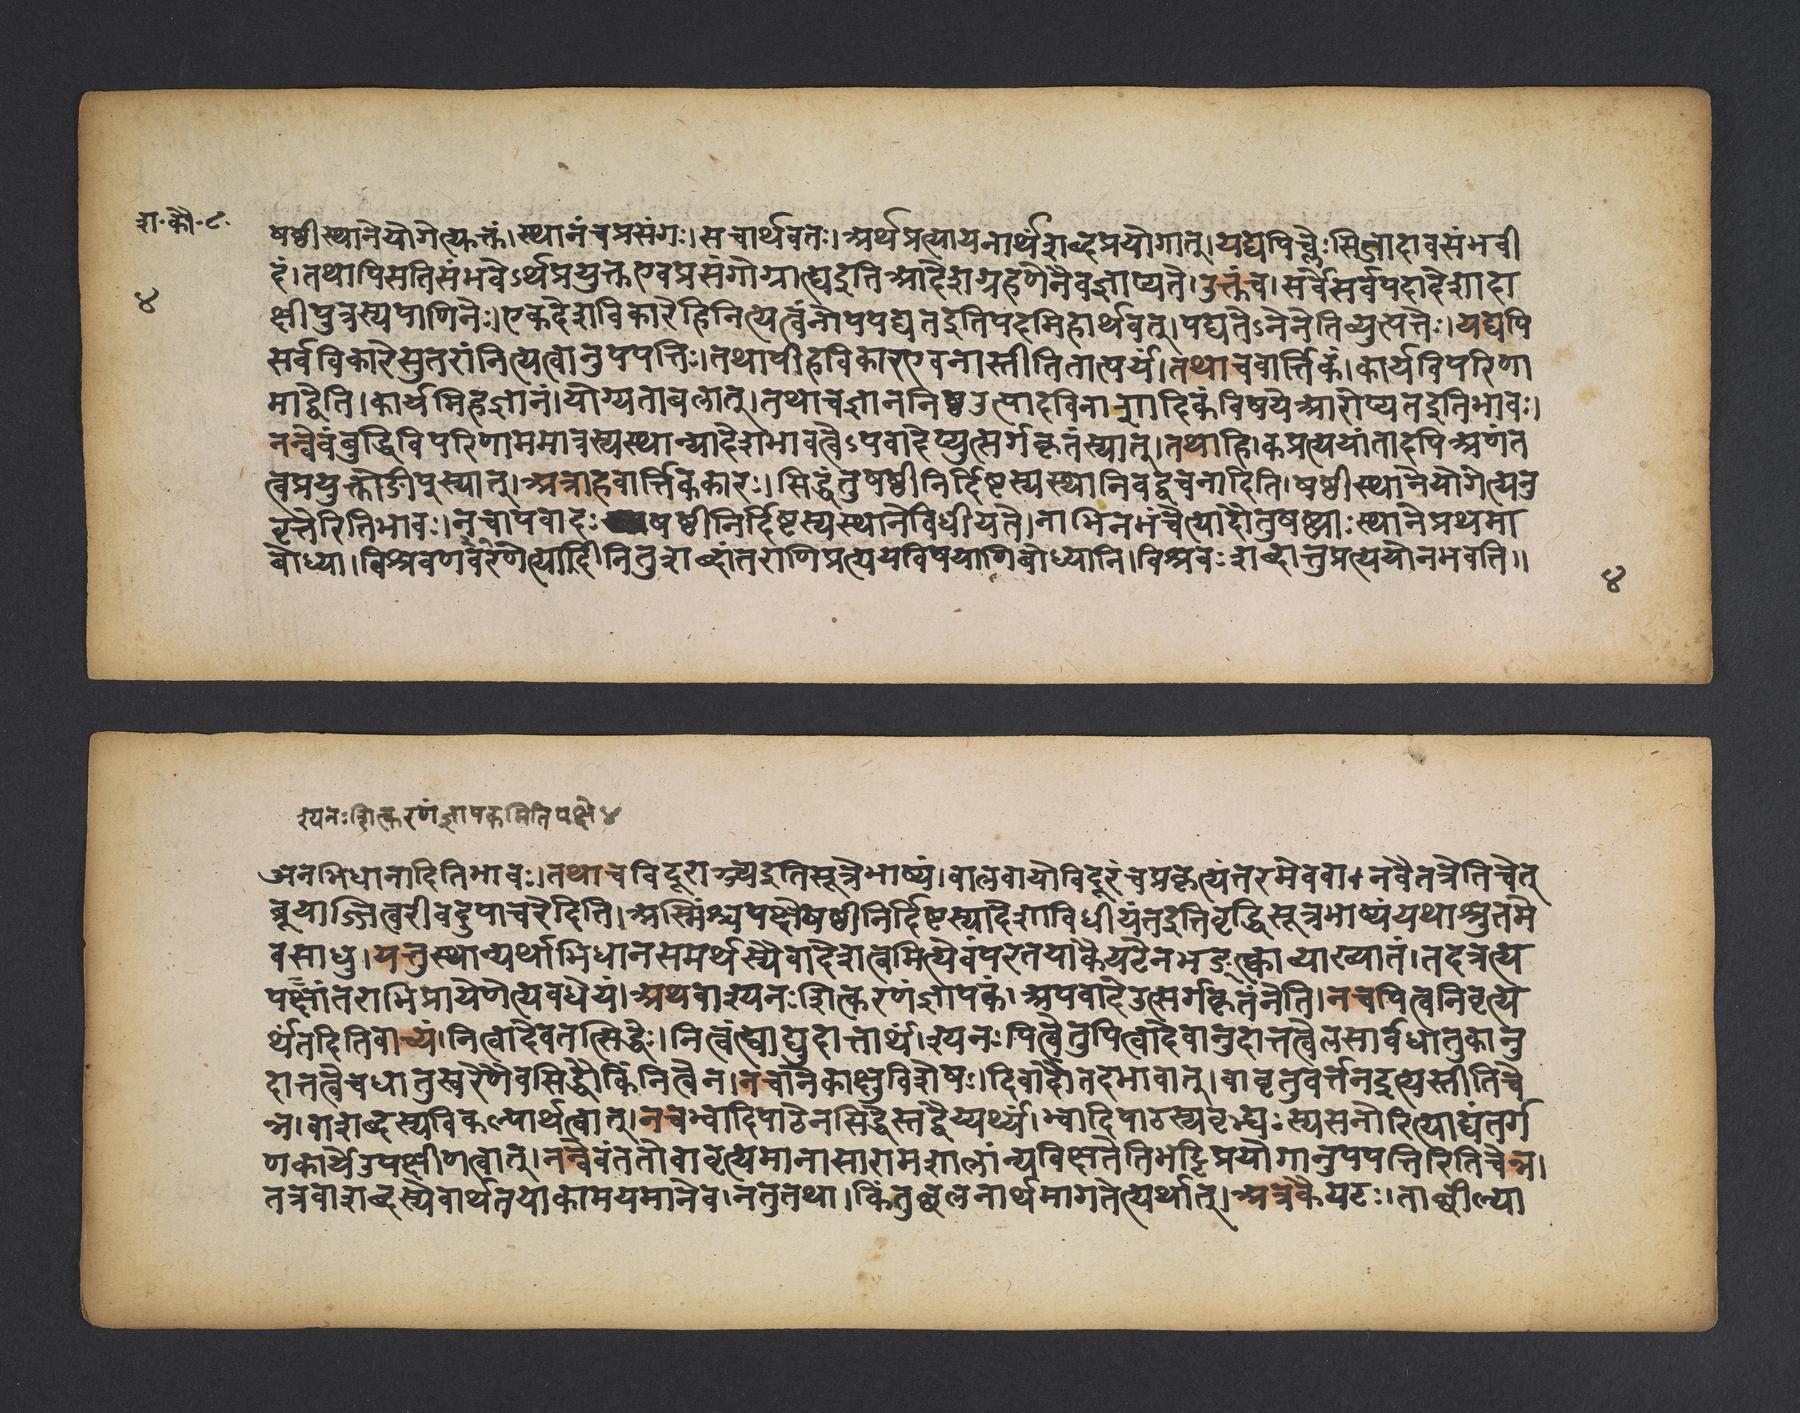 शा॰कौ॰८॰
४
षष्ठीस्थानेयोगेत्युक्तं।स्थानंचप्रसंगः।सचार्थवतः।अर्थप्रत्यायनार्थंशब्दप्रयोगात्।यद्यपिच्लेःसिजादावसंभवी
दं।तथापिसतिसंभवेऽर्थप्रयुक्तएवप्रसंगोग्राह्यइतिआदेशग्रहणेनैवज्ञाप्यते।उक्तंच।सर्वेसर्वपदादेशादा
क्षीपुत्रस्यपाणिनेः।एकदेशविकारेहिनित्यत्वंनोपपद्यतइतिपदमिहार्थवत्।पद्यतेऽनेनेतिव्युत्पत्तेः।यद्यपि
सर्वविकारेसुतरांनित्यत्वानुपपत्तिः।तथापीहविकारएवनास्तीतितात्पर्यं।तथाचवार्त्तिकं।कार्यविपरिणा
माद्वेति।कार्यमिहज्ञानं।योग्यताबलात्।तथाचज्ञाननिष्ठउत्पादविनाशादिकंविषयेआरोप्यतइतिभावः।
नन्वेवंबुद्धिविपरिणाममात्रस्यस्थान्यादेशभावत्वेऽपवादेप्युत्सर्गकृतंस्यात्।तथाहि।कप्रत्ययांतादपिअणंत
त्वप्रयुक्तोङीप्स्यात्।अत्राहवार्त्तिककारः।सिद्धंतुषष्ठीनिर्दिष्टस्यस्थानिवद्वचनादिति।षष्ठीस्थानेयोगेत्यनु
वृत्तेरितिभावः।नचापवादःषष्ठीनिर्दिष्टस्यस्थानेविधीयते।नाभिनभंचेत्यादौतुषष्ठ्याःस्थानेप्रथमा
बोध्या।विश्रवणवरेणेत्यादीनितुशब्दांतराणिप्रत्ययविषयाणिबोध्यानि।विश्रवःशब्दात्तुप्रत्ययोनभवति॥
४
श्यनःशित्करणंज्ञापकमितिपक्षे४
अनभिधानादितिभावः।तथाचविदूराञ्ञ्यइतिसूत्रेभाष्यं।वालवायोविदूरंचप्रकृत्यंतरमेववा।नवैतत्रेतिचेत्
ब्रूयाज्जित्वरीवदुपाचरेदिति।अस्मिंश्चपक्षेषष्ठीनिर्दिष्टस्यादेशाविधीयंतइतिवृद्धिसूत्रभाष्यंयथाश्रुतमे
वसाधु।यत्तुस्थान्यर्थाभिधानसमर्थस्यैवादेशत्वमित्येवंपरतयाकैयटेनभङ्क्त्काव्याख्यातं।तदत्रत्य
पक्षांतराभिप्रायेणेत्यवधेयं।अथवाश्यनःशित्करणंज्ञापकं।अपवादेउत्सर्गकृतंनेति।नचपित्वनिवृत्य
र्थंतदितिवाच्यं।नित्वादेवतत्सिद्धेः।नित्वंह्याद्युदात्तार्थं।श्यनःपित्वेतुपित्वादेवानुदात्तत्वेलसार्वधातुकानु
दात्तत्वेचधातुस्वरेणैवसिद्धौकिंनित्वेन।नचानेकाक्षुविशेषः।दिवादौतदभावात्।वावृतुवर्त्तनइत्यस्तीतिचे
न्न।वाशब्दस्यविकल्पार्थत्वात्।नचभ्वादिपाठेनसिद्धेस्तद्वैय्यर्थ्यं।भ्वादिपाठस्यवृद्भ्यःस्यसनोरित्याद्यंतर्ग
णकार्यउपक्षीणत्वात्।नन्वेवंततोवावृत्यमानासारामशालांन्यविक्षतेतिभट्टिप्रयोगानुपपत्तिरितिचेन्न।
तत्रवाशब्दस्यैवार्थतयाकामयमानेव।नतुतथा।किंतुछलनार्थमागतेत्यर्थात्।अत्रकैयटः।ताछील्या